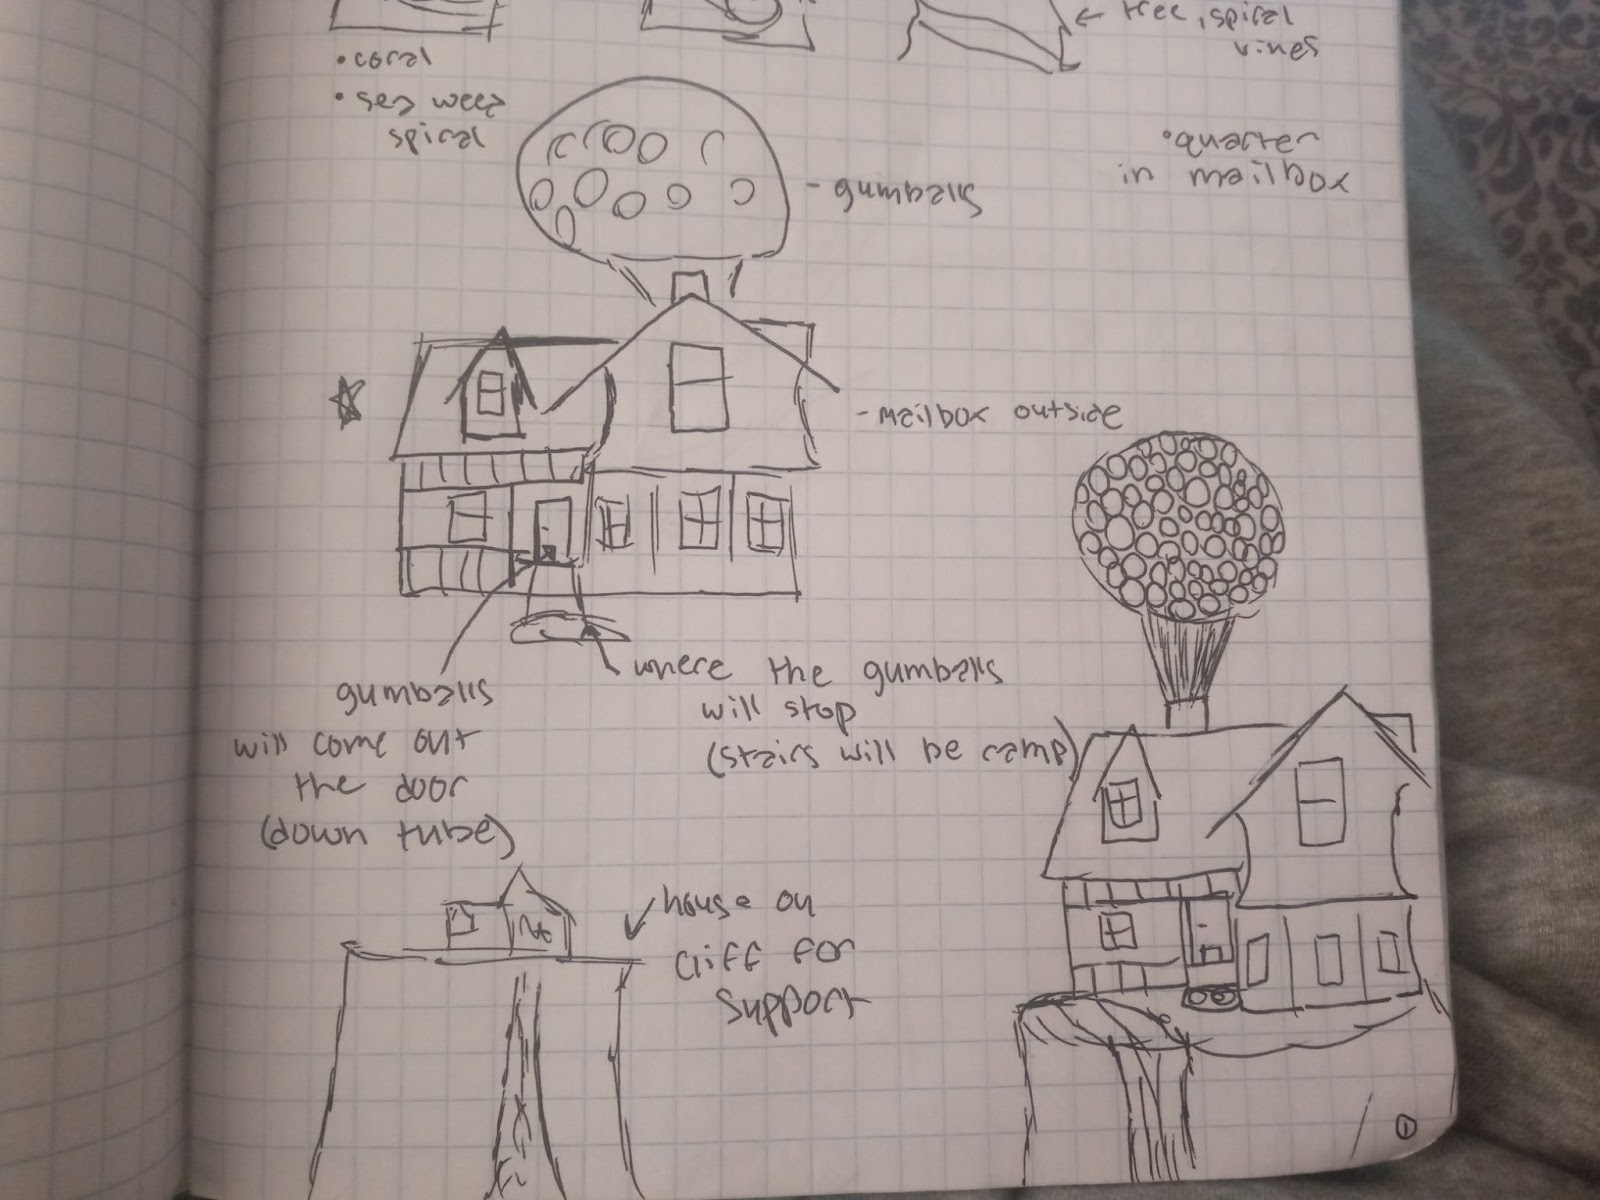 • coral
• sea weed
spiral
← tree, spiral
vines
• quarter
in mailbox
- gumballs
- mailbox outside
where the gumballs
will stop
(stairs will be ramp)
gumballs
will come out
the door
(down tube)
house on
cliff for
support
1